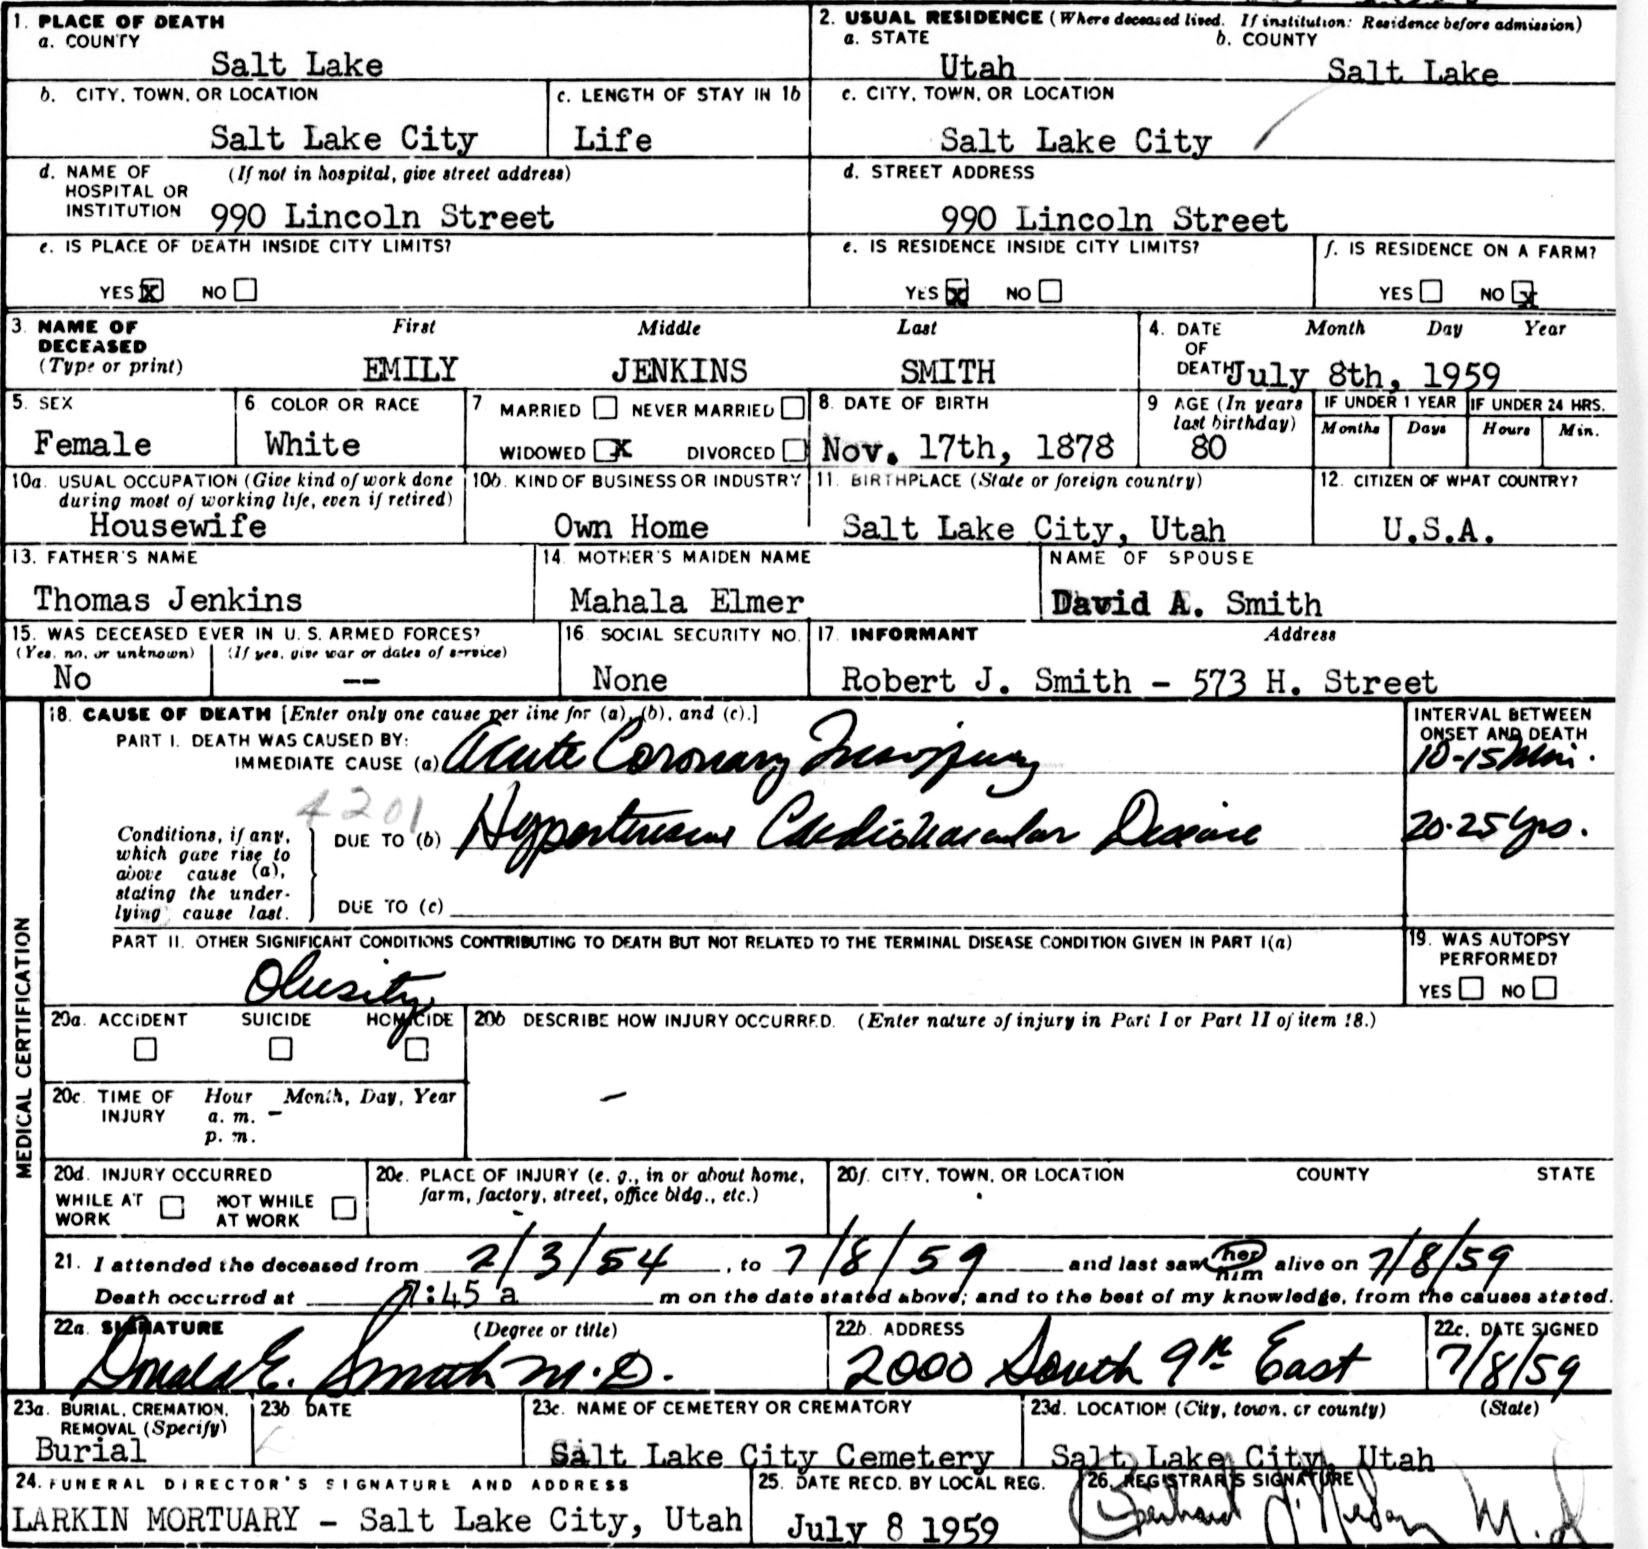 1. PLACE OF DEATH
a. COUNTY
Salt Lake
2. USUAL RESIDENCE (Where deceased lived. If institution: Residence before admission)
a. STATE b. COUNTY
Utah Salt Lake
b. CITY, TOWN, OR LOCATION
Salt Lake City
c. LENGTH OF STAY IN 1b
Life
c. CITY, TOWN, OR LOCATION
Salt Lake City
d. NAME OF (If not in hospital, give street address)
HOSPITAL OR
INSTITUTION 990 Lincoln Street
d. STREET ADDRESS
990 Lincoln Street
e. IS PLACE OF DEATH INSIDE CITY LIMITS?
YES X NO
e. IS RESIDENCE INSIDE CITY LIMITS?
YES X NO
f. IS RESIDENCE ON A FARM?
YES NO X
3. NAME OF First Middle Last
DECEASED
(Type or print) EMILY JENKINS SMITH
4. DATE Month Day Year
OF
DEATH July 8th, 1959
5. SEX
Female
6. COLOR OR RACE
White
7 MARRIED NEVER MARRIED
WIDOWED X DIVORCED
8. DATE OF BIRTH
Nov. 17th, 1878
9 AGE (In years
last birthday)
80
IF UNDER 1 YEAR IF UNDER 24 HRS.
Months Days Hours Min.
10a. USUAL OCCUPATION (Give kind of work done
during most of working life, even if retired)
Housewife
10b. KIND OF BUSINESS OR INDUSTRY
Own Home
11. BIRTHPLACE (State or foreign country)
Salt Lake City, Utah
12. CITIZEN OF WHAT COUNTRY?
U.S.A.
13. FATHER'S NAME
Thomas Jenkins
14. MOTHER'S MAIDEN NAME
Mahala Elmer
NAME OF SPOUSE
David A. Smith
15. WAS DECEASED EVER IN U. S. ARMED FORCES?
(Yes, no, or unknown) (If yes, give war or dates of service)
No --
16. SOCIAL SECURITY NO.
None
17. INFORMANT Address
Robert J. Smith - 573 H. Street
MEDICAL CERTIFICATION
18. CAUSE OF DEATH [Enter only one cause per line for (a), (b), and (c).]
PART I. DEATH WAS CAUSED BY:
IMMEDIATE CAUSE (a) Acute Coronary
INTERVAL BETWEEN
ONSET AND DEATH
10-15 Min.
4201
Conditions, if any,
which gave rise to
above cause (a),
stating the under-
lying cause last.
DUE TO (b) Hypertensive Cardiovascular Disease
20-25 yrs.
DUE TO (c)
PART II. OTHER SIGNIFICANT CONDITIONS CONTRIBUTING TO DEATH BUT NOT RELATED TO THE TERMINAL DISEASE CONDITION GIVEN IN PART I(a)
Obesity
19. WAS AUTOPSY
PERFORMED?
YES NO
20a. ACCIDENT SUICIDE HOMICIDE
20b DESCRIBE HOW INJURY OCCURRED. (Enter nature of injury in Part I or Part II of item 18.)
-
20c. TIME OF Hour Month, Day, Year
INJURY a. m. -
p. m.
20d. INJURY OCCURRED
WHILE AT NOT WHILE
WORK AT WORK
20e. PLACE OF INJURY (e. g., in or about home,
farm, factory, street, office bldg., etc.)
-
20f. CITY, TOWN, OR LOCATION COUNTY STATE
21. I attended the deceased from 2/3/54, to 7/8/59 and last saw her him alive on 7/8/59
Death occurred at 7:45 a m on the date stated above; and to the best of my knowledge, from the causes stated.
22a. SIGNATURE (Degree or title)
Donald E. Smith M.D.
22b. ADDRESS
2000 South 9th East
22c. DATE SIGNED
7/8/59
23a. BURIAL, CREMATION,
REMOVAL (Specify)
Burial
23b DATE
23c. NAME OF CEMETERY OR CREMATORY
Salt Lake City Cemetery
23d. LOCATION (City, town, or county) (State)
Salt Lake City, Utah
24. FUNERAL DIRECTOR'S SIGNATURE AND ADDRESS
LARKIN MORTUARY - Salt Lake City, Utah
25. DATE RECD. BY LOCAL REG.
July 8 1959
26. REGISTRAR'S SIGNATURE
M.D